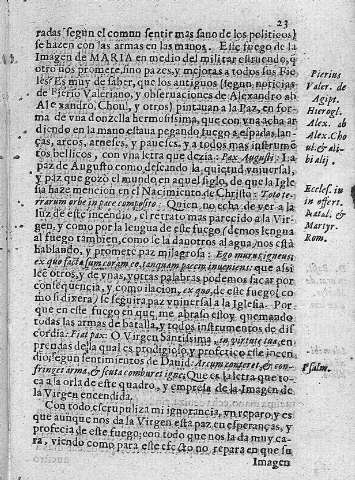 23
radas segun el comun sentir mas sano de los politicos)
se hazen con las armas en las manos. Este fuego de la
Imagen de MARIA en medio del militar estruendo, q̃
otro nos promete, sino pazes, y mejoras a todos sus Fie
les? Es muy de saber, que los antiguos (segun noticias
de Pierio Valeriano, y observaciones de Alexandro ab
Alexandro, Choul, y otros) pintauan a la Paz, en for-
ma de vna donzella hermosissima, que con vna acha ar
diendo en la mano estaua pegando fuego a espadas lan-
ças, arcos, arneses, y paueses, y a todos mas instrume
tos bellicos, con vna letra que dezia: Pax Augusti: La
paz de Augusto como descanso, la quietud vniuersal,
y paz que gozò el mundo en aquel siglo, de que la Igle
sia haze mencion en el Nacimiento de Christo: Toto te-
rrarum orbe in pace composito: Quien no echa de ver a la
luz de este incendio, el retrato mas parecido a la Vir-
gen, y como por la lengua de este fuego (demos lengua
al fuego tambien, como se la dan otros al agua) nos està
hablando, y promete paz milagrosa: Ego murus igneus;
ex quo facta sum coram eo, tanquam pacem inueniens: que assi
lee otros, y de vnas, y otras palabras podemos sacar por
consequencia, y como ilacion, ex quo, de este fuego (co
mo si dixera) se seguira paz vniuersal a la Iglesia. Por
que en este fuego en que me abraso estoy quemando
todas las armas de batalla, y todos instrumentos de dis
cordia: Fiat pax: O Virgen Santissima, in virtute tua, en
prendas de la qual es prodigioso, y profetico este incen
dio; segun sentimientos de Dauid: Arcum conteret, & con-
fringet arma, & scuta comburet igne: Que es la letra que to-
ca a la orla de este quadro, y empresa de la Imagen de la
Virgen encendida.
Con todo escrupuliza mi ignorancia, vn reparo, y es
que aunque nos da la Virgen esta paz en esperanças, y
profecia de este fuego; con todo que nos la da muy ca-
ra, viendo como para este efecto no repara en que su
Imagen
Pierius
Valer. de
Agipt.
Hierogl.
Alex. ab
Alex. Cho
ul & ali-
bi alij.
Eccles. in
in offert.
Natal. &
Martyr.
Rom.
Psalm.